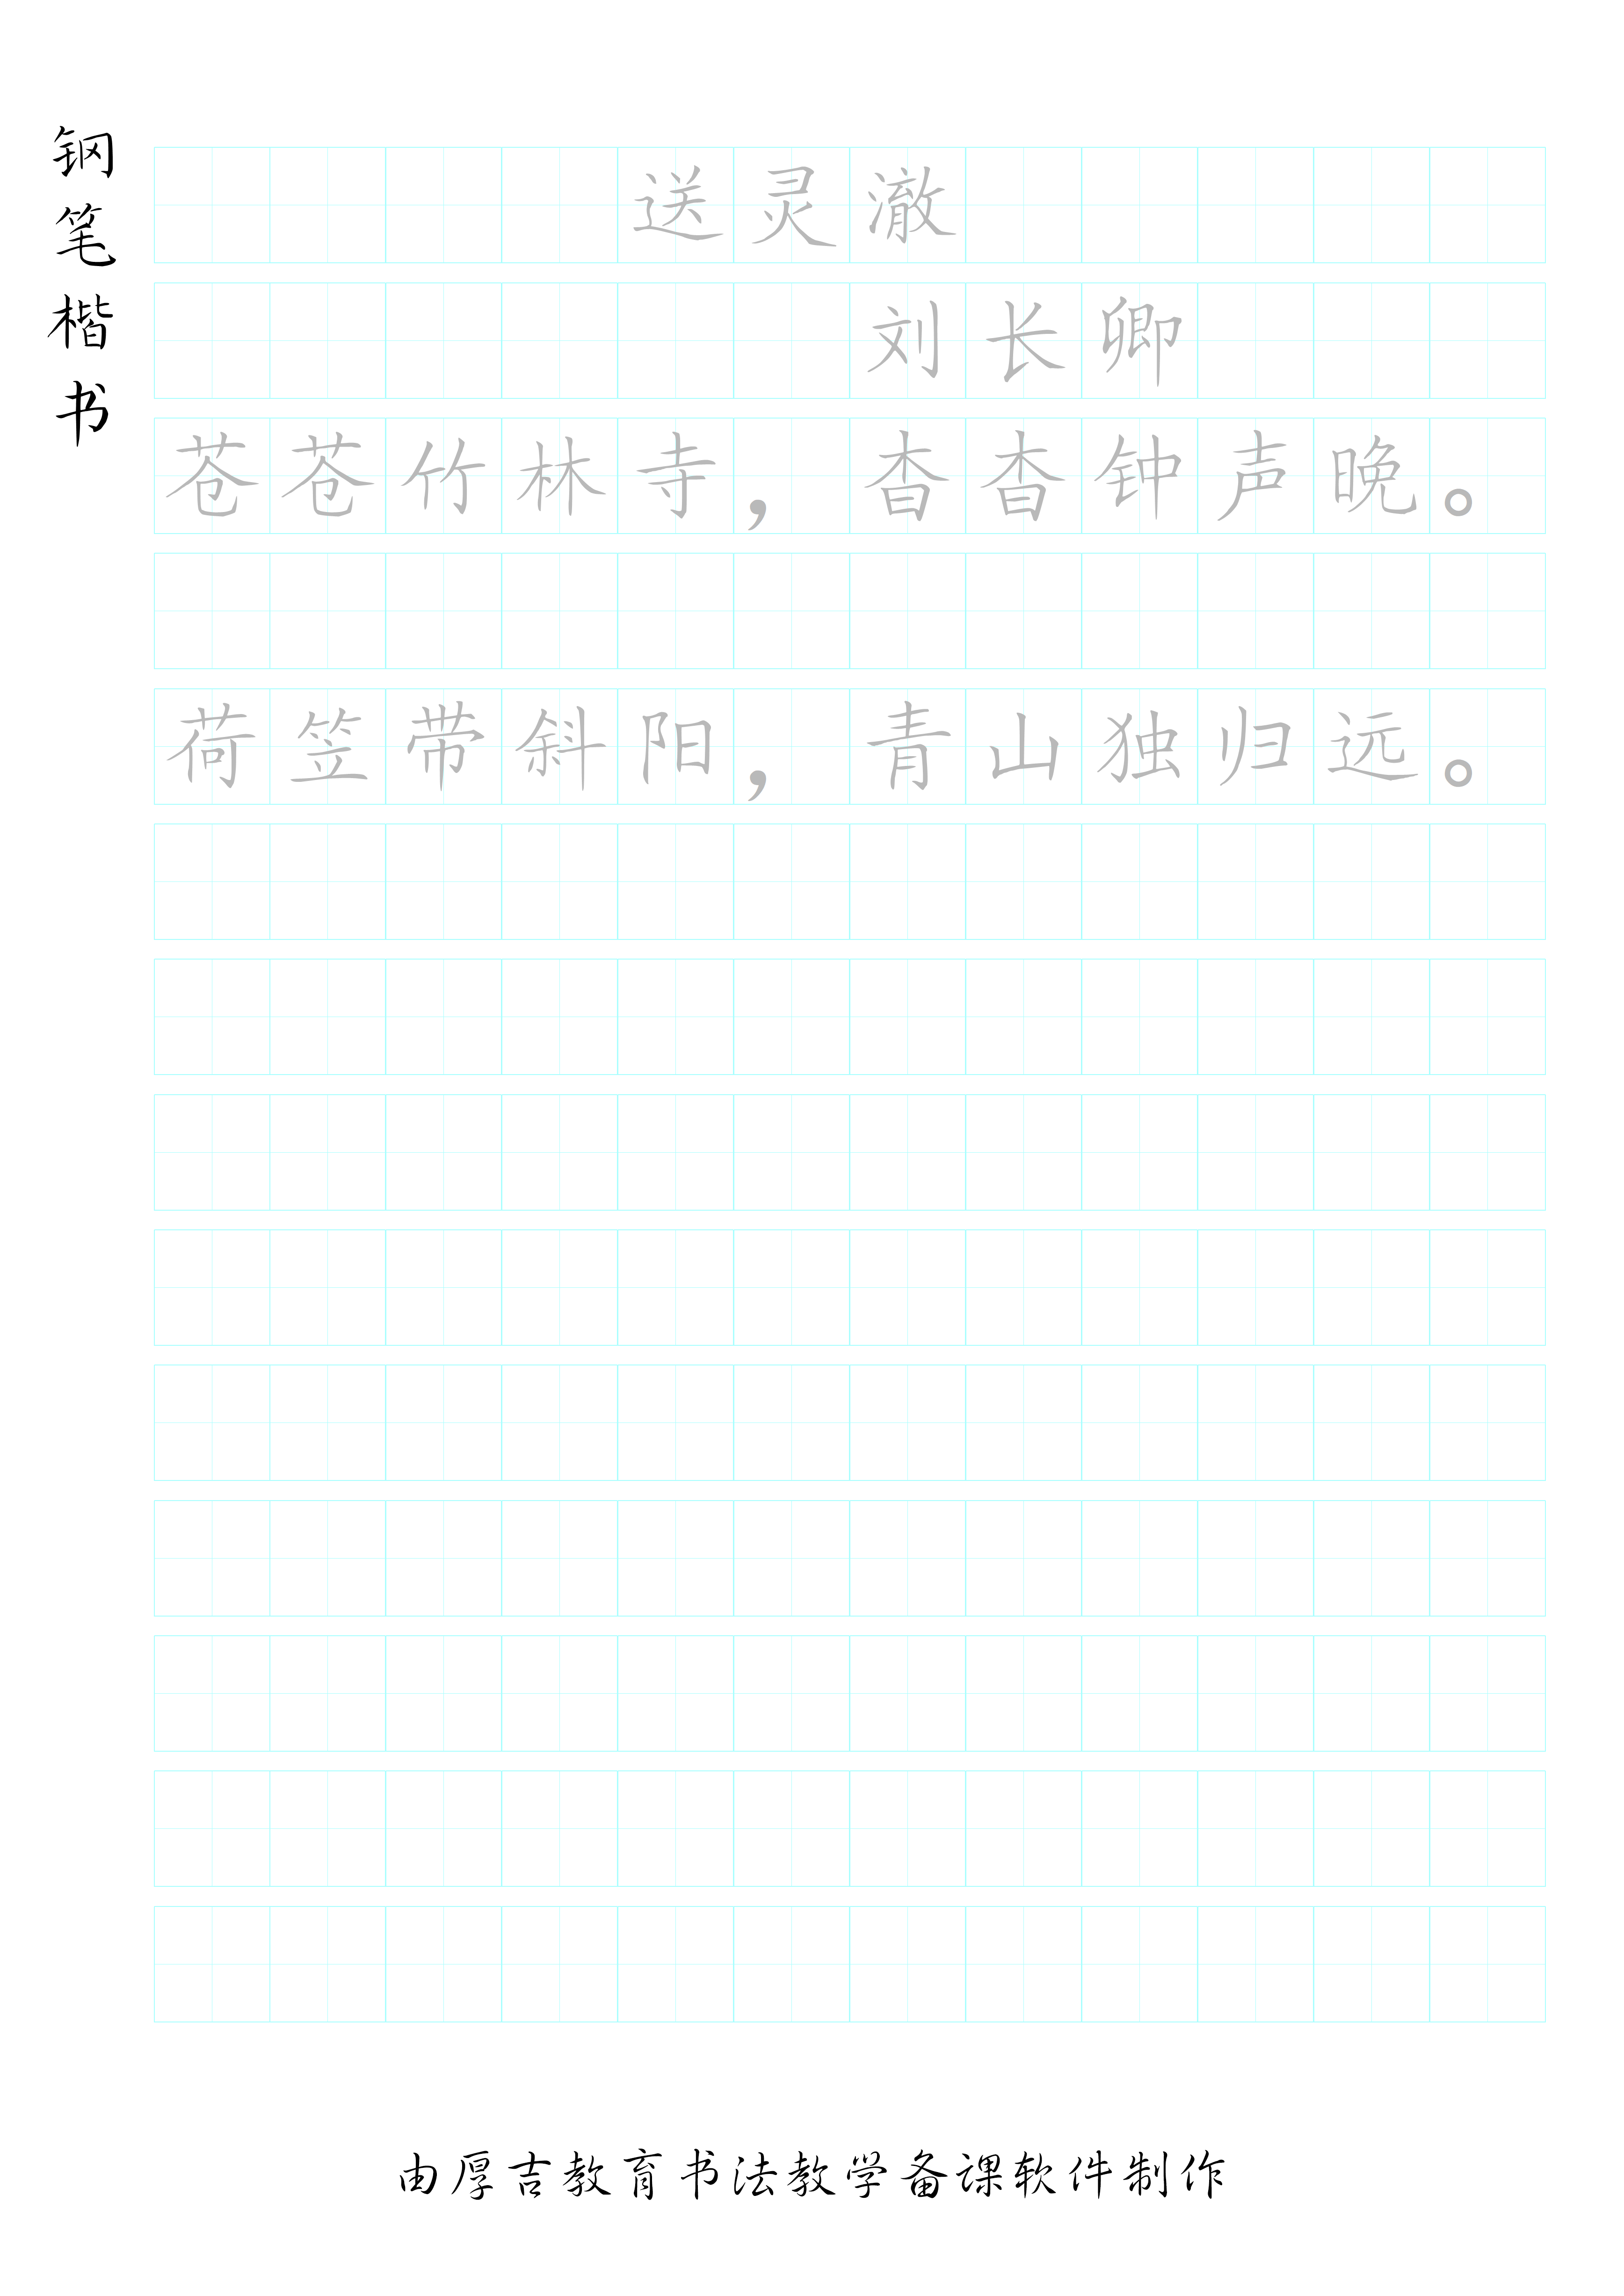 钢笔楷书
送灵澈
刘长卿
苍苍竹林寺，杳杳钟声晚。
荷笠带斜阳，青山独归远。
由厚吉教育书法教学备课软件制作